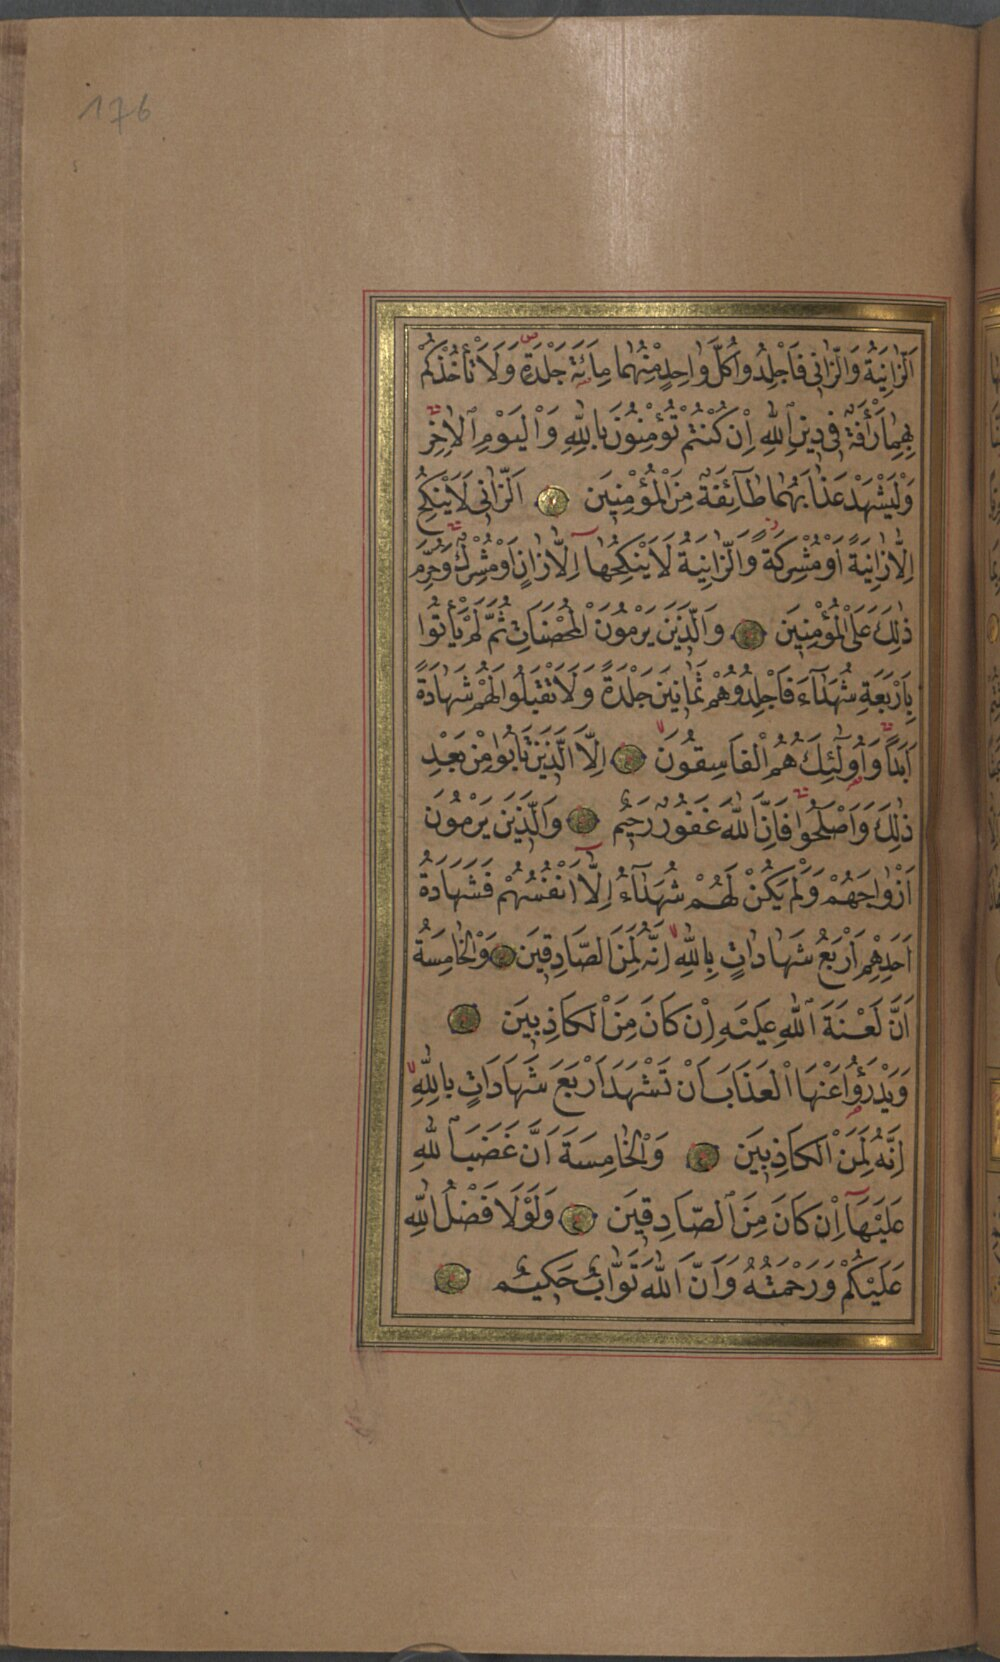 176
اَلزَّانِيَةُ وَالزَّانٖى فَاجْلِدُوا كُلَّ وَاحِدٍ مِنْهُمَا مِائَةَ جَلْدَةٍ وَلَا تَأْخُذْكُمْ
بِهِمَا رَأْفَةٌ فٖى دٖينِ اللّٰهِ اِنْ كُنْتُمْ تُؤْمِنُونَ بِاللّٰهِ وَالْيَوْمِ الْاٰخِرِ
وَلْيَشْهَدْ عَذَابَهُمَا طَآئِفَةٌ مِنَ الْمُؤْمِنٖينَ اَلزَّانٖى لَا يَنْكِحُ
اِلَّا زَانِيَةً اَوْ مُشْرِكَةً وَالزَّانِيَةُ لَا يَنْكِحُهَا اِلَّا زَانٍ اَوْ مُشْرِكٌ وَحُرِّمَ
ذٰلِكَ عَلَى الْمُؤْمِنٖينَ وَالَّذٖينَ يَرْمُونَ الْمُحْصَنَاتِ ثُمَّ لَمْ يَأْتُوا
بِاَرْبَعَةِ شُهَدَآءَ فَاجْلِدُوهُمْ ثَمَانٖينَ جَلْدَةً وَلَا تَقْبَلُوا لَهُمْ شَهَادَةً
اَبَدًا وَاُولٰٓئِكَ هُمُ الْفَاسِقُونَ اِلَّا الَّذٖينَ تَابُوا مِنْ بَعْدِ
ذٰلِكَ وَاَصْلَحُوا فَاِنَّ اللّٰهَ غَفُورٌ رَحٖيمٌ وَالَّذٖينَ يَرْمُونَ
اَزْوَاجَهُمْ وَلَمْ يَكُنْ لَهُمْ شُهَدَآءُ اِلَّآ اَنْفُسُهُمْ فَشَهَادَةُ
اَحَدِهِمْ اَرْبَعُ شَهَادَاتٍ بِاللّٰهِ اِنَّهُ لَمِنَ الصَّادِقٖينَ وَالْخَامِسَةُ
اَنَّ لَعْنَةَ اللّٰهِ عَلَيْهِ اِنْ كَانَ مِنَ الْكَاذِبٖينَ
وَيَدْرَؤُا عَنْهَا الْعَذَابَ اَنْ تَشْهَدَ اَرْبَعَ شَهَادَاتٍ بِاللّٰهِ
اِنَّهُ لَمِنَ الْكَاذِبٖينَ وَالْخَامِسَةَ اَنَّ غَضَبَ اللّٰهِ
عَلَيْهَآ اِنْ كَانَ مِنَ الصَّادِقٖينَ وَلَوْلَا فَضْلُ اللّٰهِ
عَلَيْكُمْ وَرَحْمَتُهُ وَاَنَّ اللّٰهَ تَوَّابٌ حَكٖيمٌ